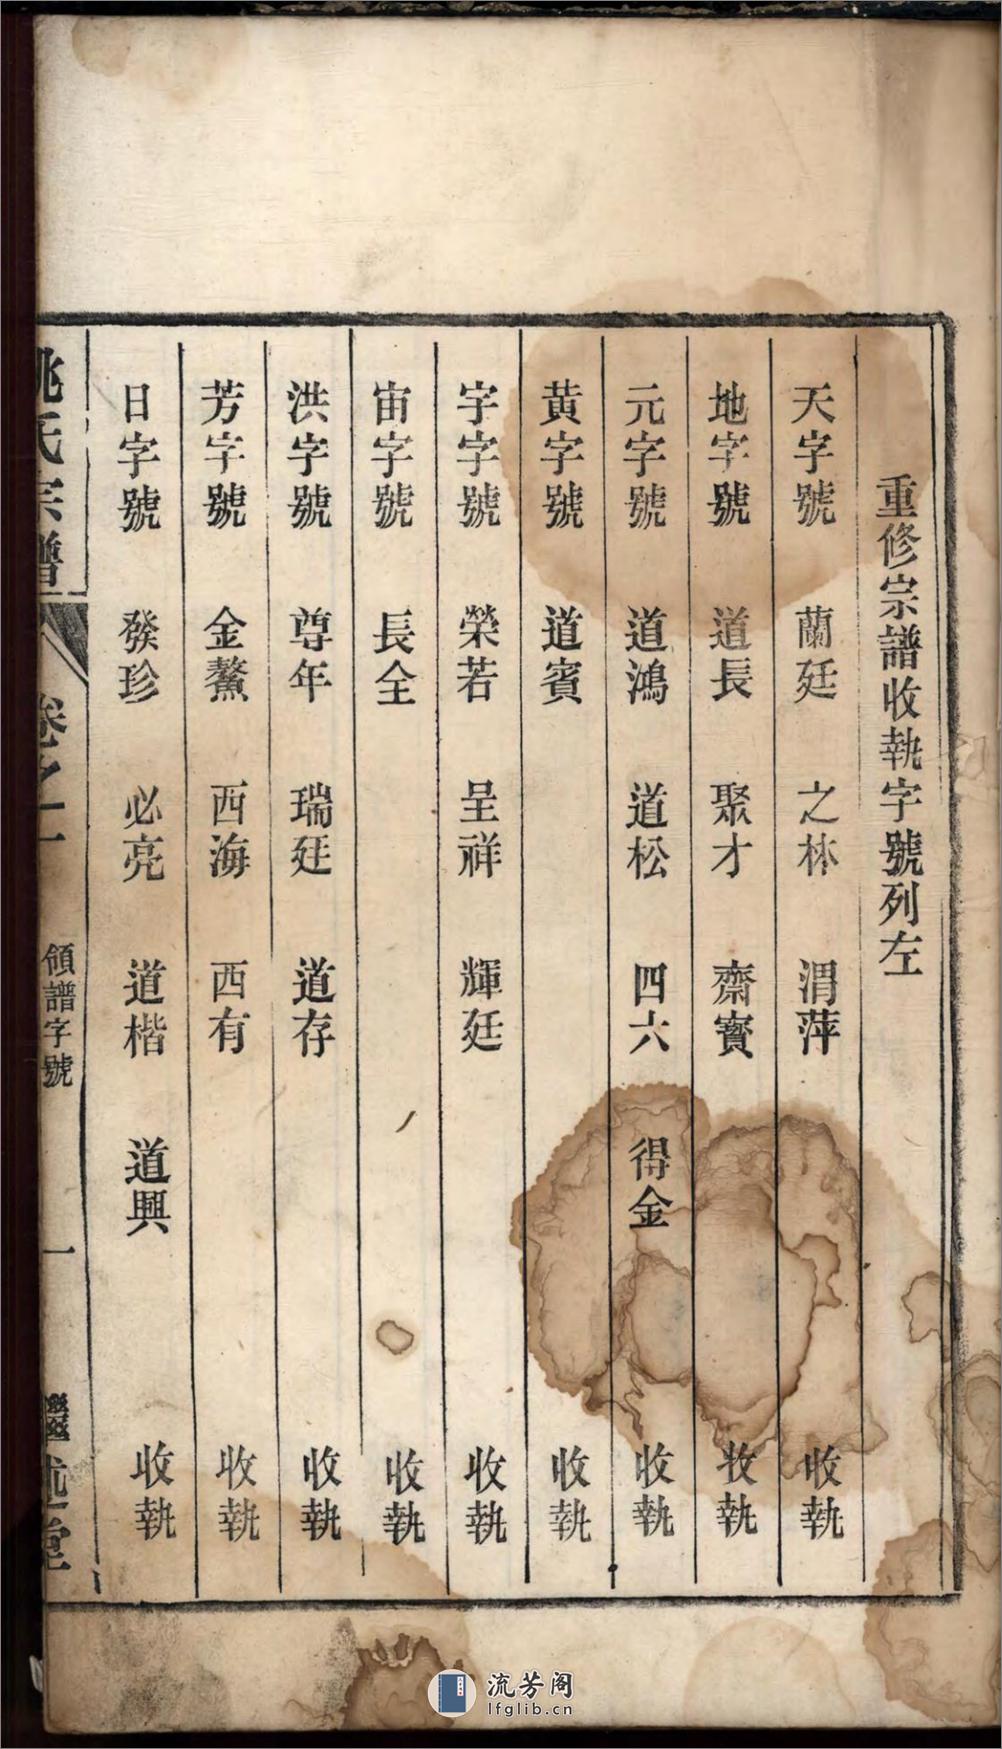 重修宗譜收執字號列左
天字號 蘭廷 之林 渭萍 收執
地字號 道長 聚才 齋寶 收執
元字號 道鴻 道松 四六 得金 收執
黄字號 道賓 收執
宇字號 榮若 呈祥 輝廷 收執
宙字號 長全 收執
洪字號 尊年 瑞廷 道存 收執
芳字號 金鰲 西海 西有 收執
日字號 發珍 必亮 道楷 道興 收執
姚氏宗譜 卷之一 領譜字號 一 繼述堂
流芳阁
lfglib.cn